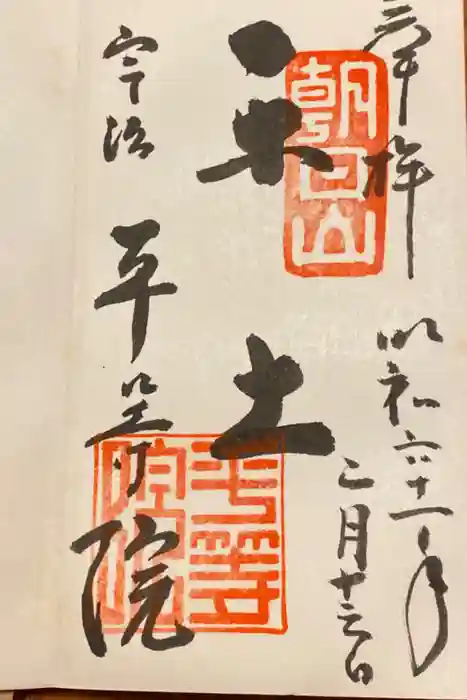 奉拝
昭和六十一年
二月十三日
朝日山
楽土
宇治
平等院
平等
院印